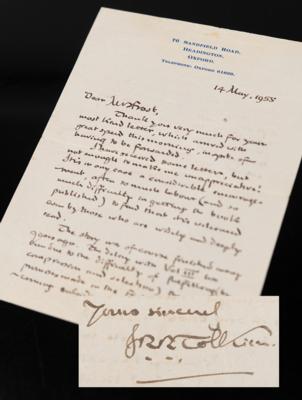 76 SANDFIELD ROAD,
HEADINGTON,
OXFORD.
TELEPHONE, OXFORD 61639.
14 May, 1955
Dear Mr Frost,
Thank you very much for your
most kind letter, which arrived with
great speed this morning, in spite of
having to be forwarded.
I have received some letters, but
not enough to make me unappreciative:
it is in any case a considerable encourage-
ment, after so much labour (and so
much difficulty in getting the book
published) to find that it is welcomed
by those who are widely and deeply
read.
The story was of course finished many
years ago. The delay with Vol III
due to the difficulty of
compression and selection) the
promises made in the
Yours sincerely
JRR Tolkien.